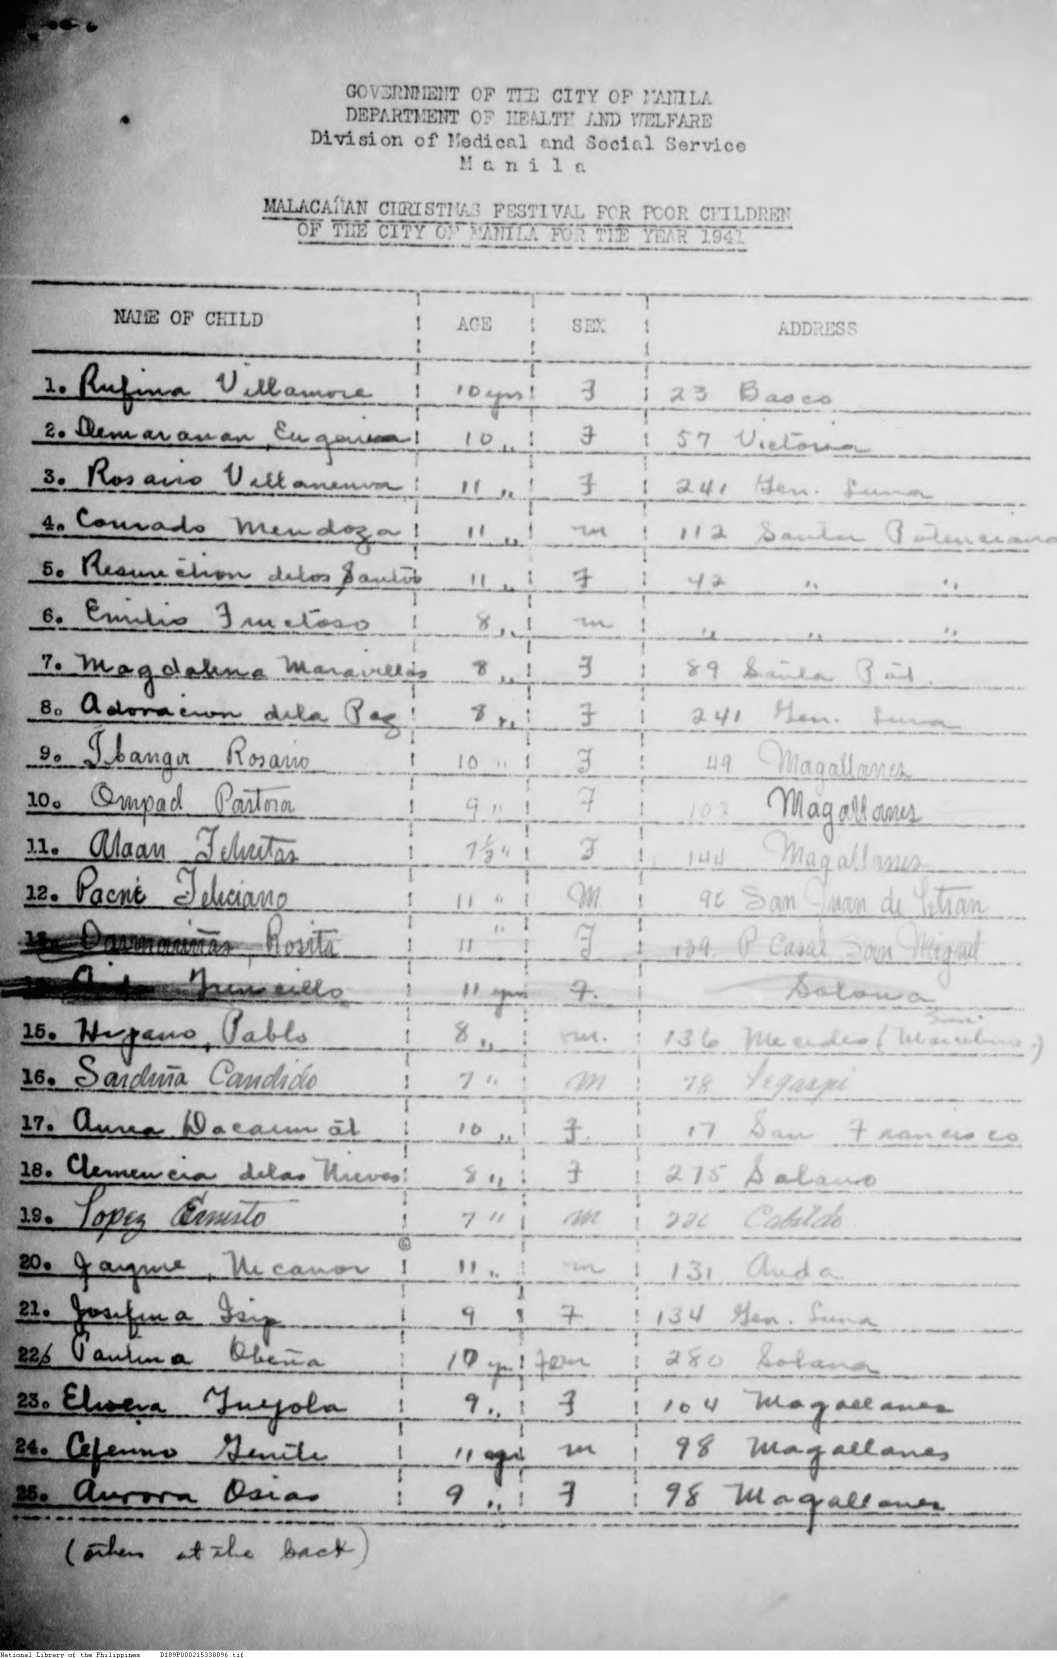 GOVERNMENT OF THE CITY OF MANILA
DEPARTMENT OF HEALTH AND WELFARE
Division of Medical and Social Service
M a n i l a
MALACAÑAN CHRISTMAS FESTIVAL FOR POOR CHILDREN
OF THE CITY OF MANILA FOR THE YEAR 1941
NAME OF CHILD AGE SEX ADDRESS
1. Rufina Villamore 10 yrs F 23 Basco
2. Demaranan, Eugenia 10 " F 57 Victoria
3. Rosario Villanueva 11 " F 241 Gen. Luna
4. Conrado Mendoza 11 " m 112 Santa Potenciana
5. Resurrection delos Santos 11 " F 42 " "
6. Emilio Fructoso 8 " m " " "
7. Magdalena Maravillas 8 " F 89 Santa Pot.
8. Adoracion dela Paz 8 " F 241 Gen. Luna
9. Rosario 10 " F 49 Magallanes
10. Ompad Pastora 9 " F Magallanes
11. Alaan Felicitas 7 1/2 " F 144 Magallanes
12. Feliciano 11 " M San Juan de Letran
Rosita 11 " F 139 P Casal San Miguel
11 yrs F. Solana
15. Pablo 8 " m. 136
16. Sardiña Candido 7 " m 78 Legaspi
17. Aurea 10 " F. 17 San Francisco
18. Clemencia delas Nieves 8 " F 275 Solano
19. Lopez Ernesto 7 " m Cabildo
20. Jayme, Nicanor 11 " m 131 Anda
21. Josefina Isip 9 F 134 Gen. Luna
22 Paulina Obeña 10 yrs fem 280 Solana
23. 9 " F 104 Magallanes
24. Ceferino 11 m 98 Magallanes
25. Aurora Osias 9 " F 98 Magallanes
(others at the back)
National Library of the Philippines D189P000215330096.tif